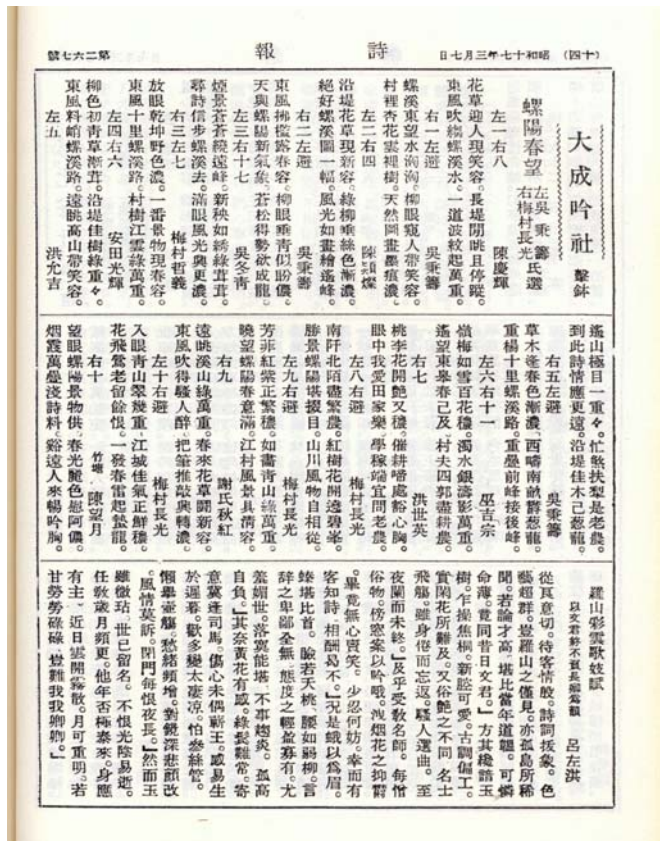 （十四） 昭和十七年三月七日
詩報
第二六七號
大成吟社 擊鉢
螺陽春望 左吳秉籌 右梅村長光 氏選
左一右八 陳慶輝
花草迎人現笑容。長堤閒眺且停蹤。
東風吹縐螺溪水。一道波紋起萬重。
右一左避 吳秉籌
螺溪東望水洶洶。柳眼窺人帶笑容。
村裡杏花雲裡樹。天然圖畫墨痕濃。
左二右四 陳
沿堤花草現新容。綠柳垂絲色漸濃。
絕好螺溪圖一幅。風光如畫繪遙峰。
右二左避 吳秉籌
東風拂檻露春容。柳眼垂青似盼儂。
天與螺陽新氣象。蒼松得勢欲成龍。
左三右十七 吳冬青
煙景蒼蒼繞遠峰。新秧如綉綠茸茸。
尋詩信步螺溪去。滿眼風光興更濃。
右三左七 梅村哲義
放眼乾坤野色濃。一番景物現春容。
東風十里螺溪路。村樹江雲綠萬重。
左四右六 安田光輝
柳色初青草漸茸。沿堤佳樹綠重々。
東風料峭螺溪路。遠眺高山帶笑容。
左五 洪允吉
遙山極目一重々。忙煞扶犁是老農。
到此詩情應更遠。沿堤佳木已葱蘢。
右五左避 吳秉籌
草木逢春色漸濃。西疇南畝鬱葱蘢。
重楊十里螺溪路。重疊前峰接後峰。
左六右十一 巫吉宗
嶺梅如雪百花穠。濁水銀濤影萬重。
遙望東皋春已及。村夫四郭盡耕農。
右七 洪世英
桃李花開艷又穠。催耕啼處豁心胸。
眼中我愛田家樂。學稼端宜問老農。
左八右避 梅村長光
南阡北陌盡繁農。紅樹花開遶碧峯。
勝景螺陽堪掇目。山川風物自相從。
左九右避 梅村長光
芳菲紅紫正繁穠。如畵青山綠萬重。
曉望螺陽春意滿。江村風景具清容。
右九 謝氏秋紅
遠眺溪山綠萬重。春來花草鬪新容。
東風吹得騷人醉。把筆推敲興轉濃。
左十右避 梅村長光
入眼青山翠幾重。江城佳氣正鮮穠。
花飛鶯老留餘恨。一發春雷起蟄龍。
右十 竹塘 陳望月
望眼螺陽景物供。春光艷色慰阿儂。
烟霞萬疊淺詩料。谿遠人來暢吟胸。
羅山彩雲歌妓賦
以文君終不負長卿為韻 呂左淇
從良意切。待客情殷。詩詞援象。色
藝超群。豈羅山之僅見。亦孤島所稀
聞。若論才高。堪比當年道韞。可憐
命薄。竟同昔日文君。」方其櫳諳玉
樹。乍操焦桐。新腔可愛。古調偏工。
實閑花所難及。又俗艷之不同。名士
飛觴。雖身倦而忘返。騷人選曲。至
夜闌而未終。」及乎受敎名師。每惜
俗物。傍窓案以吟哦。洩烟花之抑鬱
。畢竟無心賣笑。少忍何妨。幸而有
客知詩。相酬曷不。」况是蛾以為眉。
螓堪比首。臉若天桃。腰如弱柳。言
辭之卑鄙全無。態度之輕盈寡有。尤
羞媚世。洛異能堪。不事趨炎。孤高
自負。」其奈黃花有感。綠髮難常。寄
意莫逢司馬。傷心未偶蘄王。感易生
於遲暮。歡多變太凄凉。怕參絲管。
懶舉壺觴。愁緖頻增。對鏡深悲顏改
。風情莫訴。閉門每恨夜長。」然而玉
雖微玷。世已留名。不恨光陰易逝。
任敎歲月頻更。他年否極泰來。身應
有主。近日雲開霧散。月可重明。若
甘勞勞碌碌。豈難我我卿卿。」